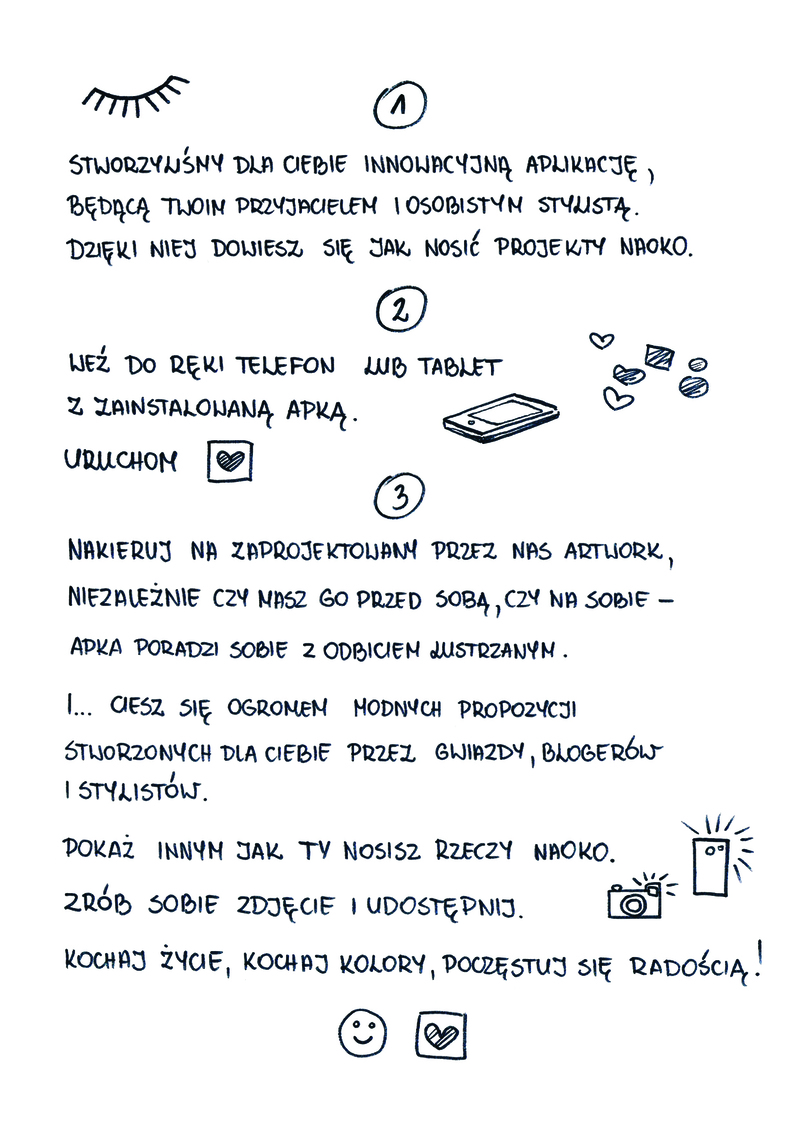 1
STWORZYLIŚMY DLA CIEBIE INNOWACYJNĄ APLIKACJĘ,
BĘDĄCĄ TWOIM PRZYJACIELEM I OSOBISTYM STYLISTĄ.
DZIĘKI NIEJ DOWIESZ SIĘ JAK NOSIĆ PROJEKTY NAOKO.
2
WEŹ DO RĘKI TELEFON LUB TABLET
Z ZAINSTALOWANĄ APKĄ.
URUCHOM
3
NAKIERUJ NA ZAPROJEKTOWANY PRZEZ NAS ARTWORK,
NIEZALEŻNIE CZY MASZ GO PRZED SOBĄ, CZY NA SOBIE –
APKA PORADZI SOBIE Z ODBICIEM LUSTRZANYM.
I... CIESZ SIĘ OGROMEM MODNYCH PROPOZYCJI
STWORZONYCH DLA CIEBIE PRZEZ GWIAZDY, BLOGERÓW
I STYLISTÓW.
POKAŻ INNYM JAK TY NOSISZ RZECZY NAOKO.
ZRÓB SOBIE ZDJĘCIE I UDOSTĘPNIJ.
KOCHAJ ŻYCIE, KOCHAJ KOLORY, POCZĘSTUJ SIĘ RADOŚCIĄ!